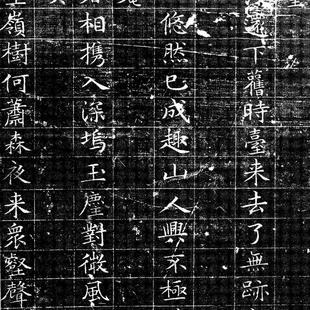 下舊時臺来去了無跡
悠然已成趣山人興不極
相携入深塢玉麈對微風
嶺樹何蕭森夜来衆壑聲